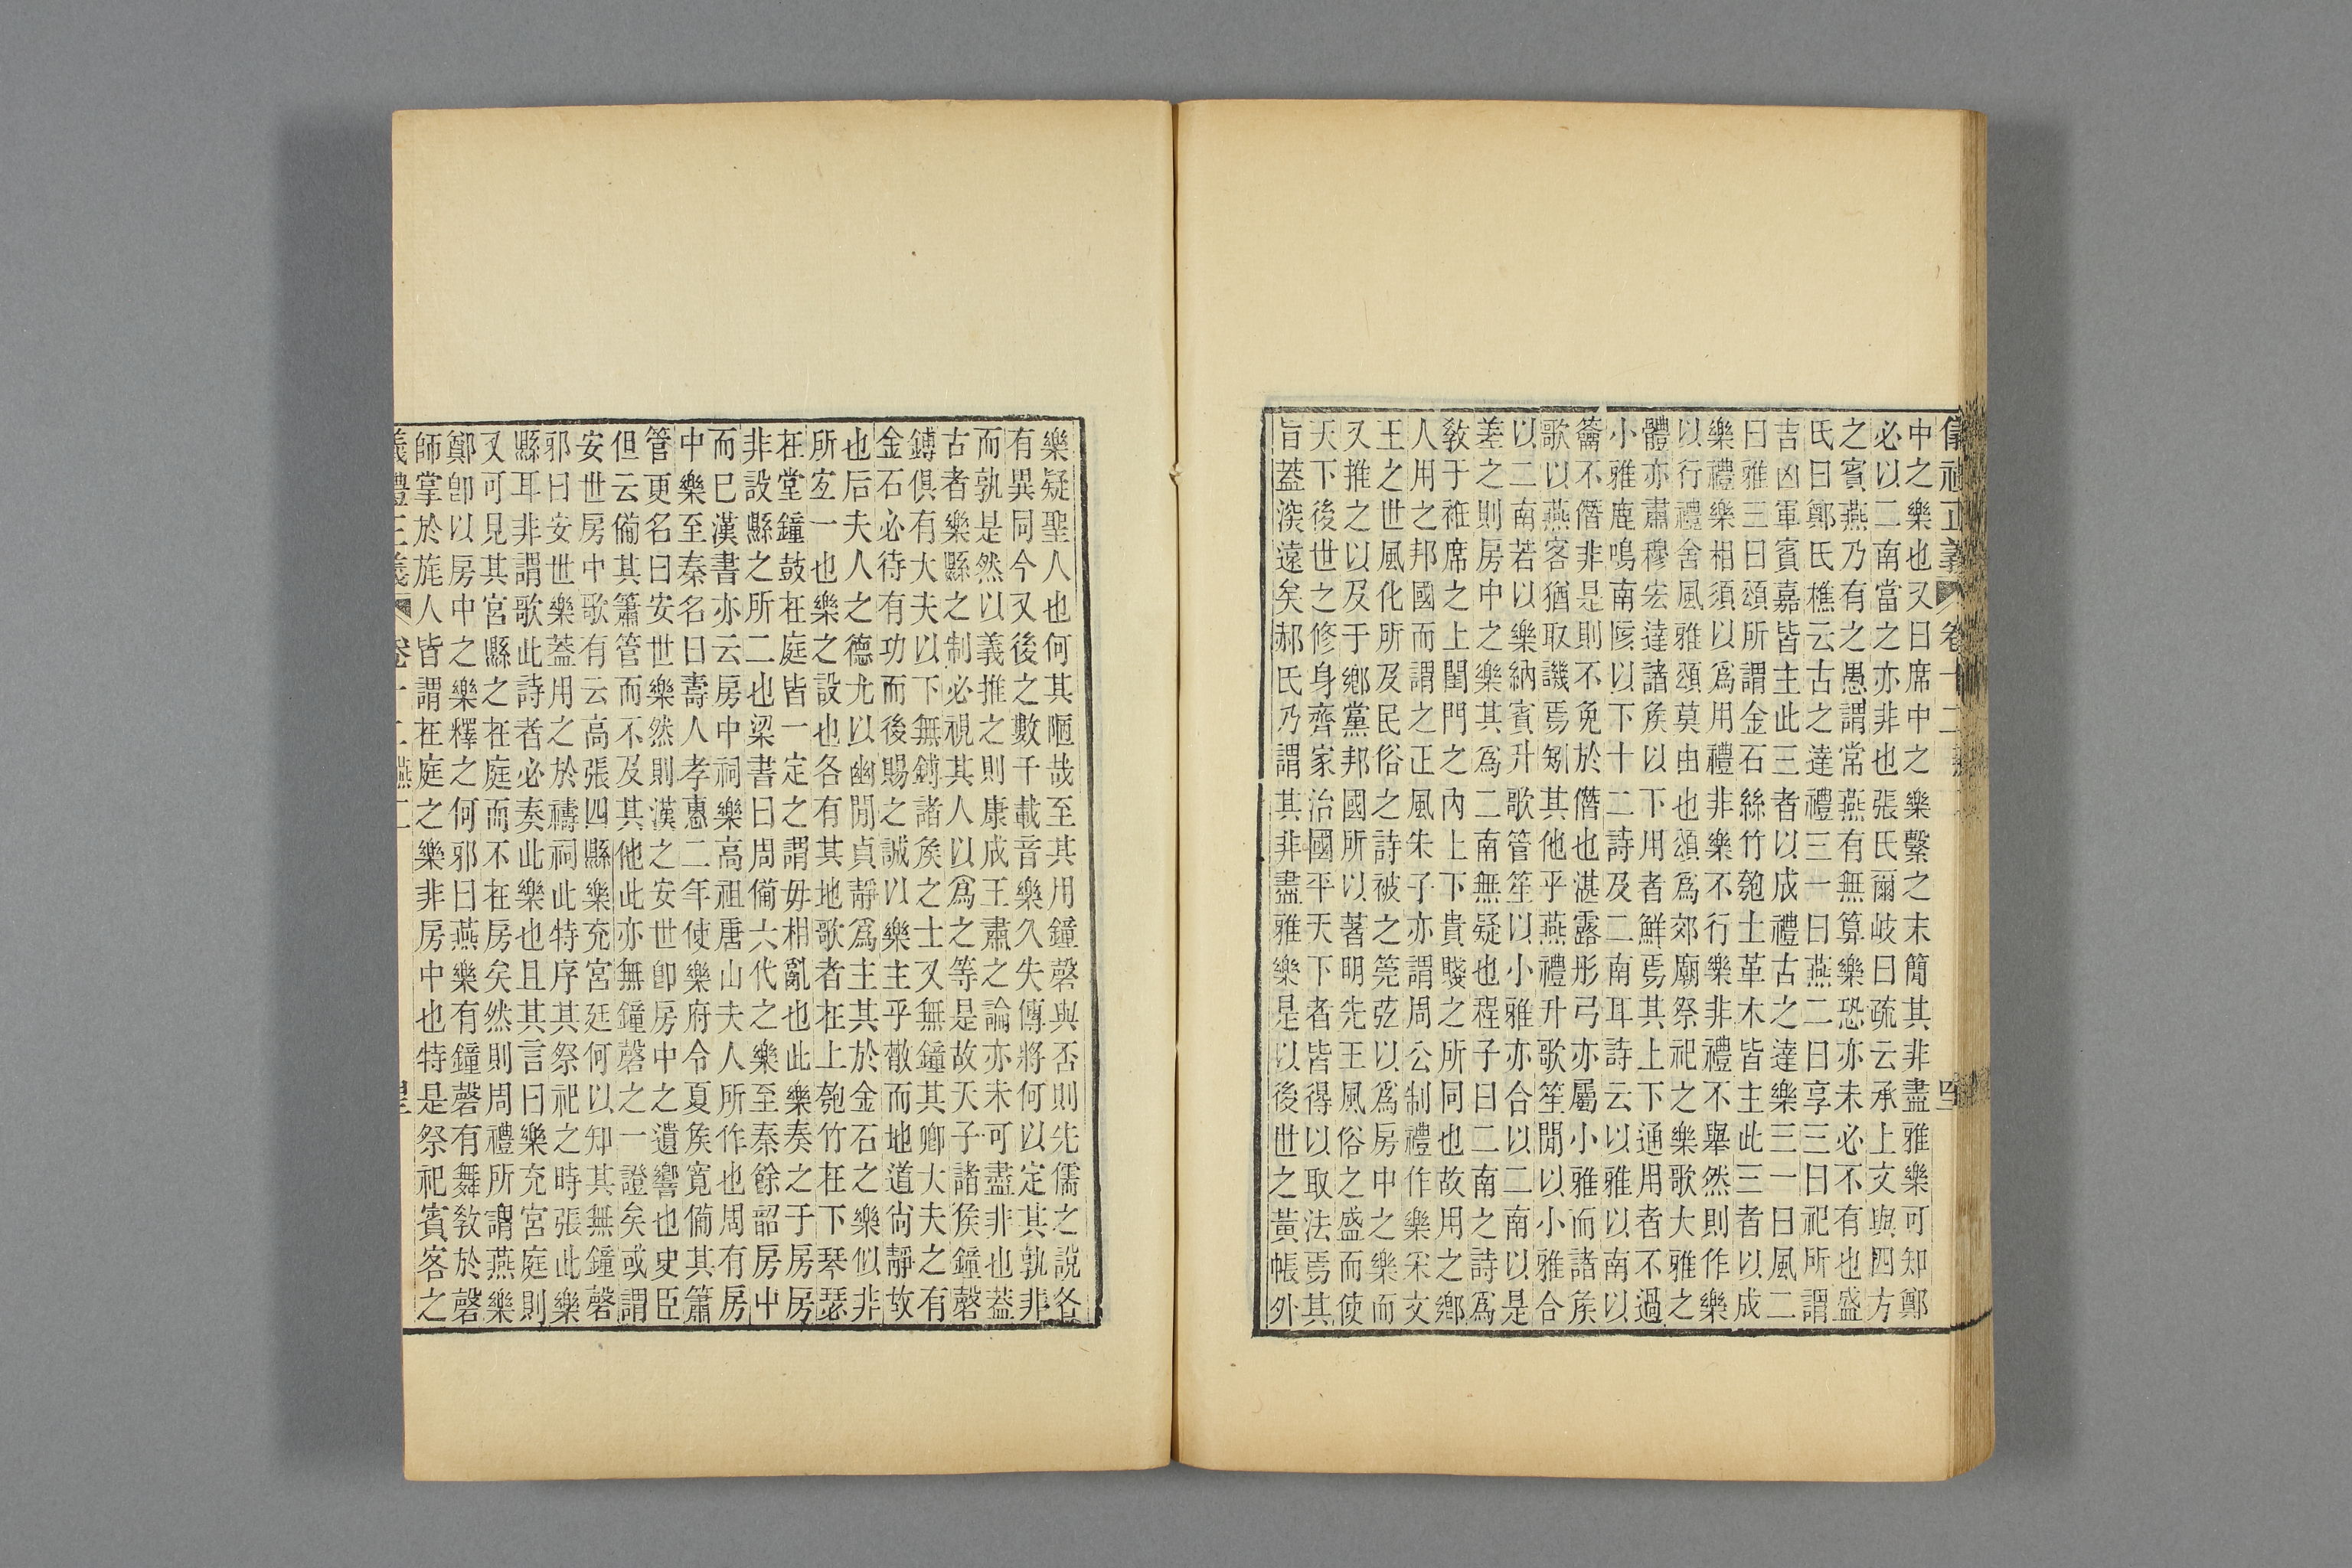 儀禮正義 卷十二 燕二
中之樂也又曰席中之樂繫之末簡其非盡雅樂可知鄭
必以二南當之亦非也張氏爾岐曰疏云承上文與四方
之賓燕乃有之愚謂常燕有無算樂恐亦未必不有也盛
氏曰鄭氏樵云古之達禮三一曰燕二曰享三曰祀所謂
吉凶軍賓嘉皆主此三者以成禮古之達樂三一曰風二
曰雅三曰頌所謂金石絲竹匏土革木皆主此三者以成
樂禮樂相須以爲用禮非樂不行樂非禮不舉然則作樂
以行禮舍風雅頌莫由也頌爲郊廟祭祀之樂歌大雅之
體亦肅穆宏達諸矦以下用者鮮焉其上下通用者不過
小雅鹿鳴南陔以下十二詩及二南耳詩云以雅以南以
籥不僭非是則不免於僭也湛露彤弓亦屬小雅而諸矦
歌以燕客猶取譏焉矧其他乎燕禮升歌笙閒以小雅合
以二南若以樂納賓升歌管笙以小雅亦合以二南以是
差之則房中之樂其爲二南無疑也程子曰二南之詩爲
敎于衽席之上閨門之內上下貴賤之所同也故用之鄉
人用之邦國而謂之正風朱子亦謂周公制禮作樂宋文
王之世風化所及民俗之詩被之筦弦以爲房中之樂而
又推之以及于鄉黨邦國所以著明先王風俗之盛而使
天下後世之修身齊家治國平天下者皆得以取法焉其
旨葢深遠矣郝氏乃謂其非盡雅樂是以後世之黃帳外
樂疑聖人也何其陋哉至其用鐘磬與否則先儒之說各
有異同今又後之數千載音樂久失傳將何以定其孰非
而孰是然以義推之則康成王肅之論亦未可盡非也葢
古者樂縣之制必視其人以爲之等是故天子諸矦鐘磬
鎛俱有大夫以下無鎛諸矦之士又無鐘其卿大夫之有
金石必待有功而後賜之誠以樂主乎散而地道尚靜故
也后夫人之德尤以幽閒貞靜爲主其於金石之樂似非
所宐一也樂之設也各有其地歌者在上匏竹在下琴瑟
在堂鐘鼓在庭皆一定之謂毋相亂也此樂奏之于房房
非設縣之所二也梁書曰周備六代之樂至秦餘韶房中
而已漢書亦云房中祠樂高祖唐山夫人所作也周有房
中樂至秦名曰壽人孝惠二年使樂府令夏矦寬備其簫
管更名曰安世樂然則漢之安世卽房中之遺響也史臣
但云備其簫管而不及其他此亦無鐘磬之一證矣或謂
安世房中歌有云高張四縣樂充宮廷何以知其無鐘磬
邪曰安世樂葢用之於禱祠此特序其祭祀之時張此樂
縣耳非謂歌此詩者必奏此樂也且其言曰樂充宮庭則
又可見其宮縣之在庭而不在房矣然則周禮所謂燕樂
鄭卽以房中之樂釋之何邪曰燕樂有鐘磬有舞敎於磬
師掌於旄人皆謂在庭之樂非房中也特是祭祀賓客之